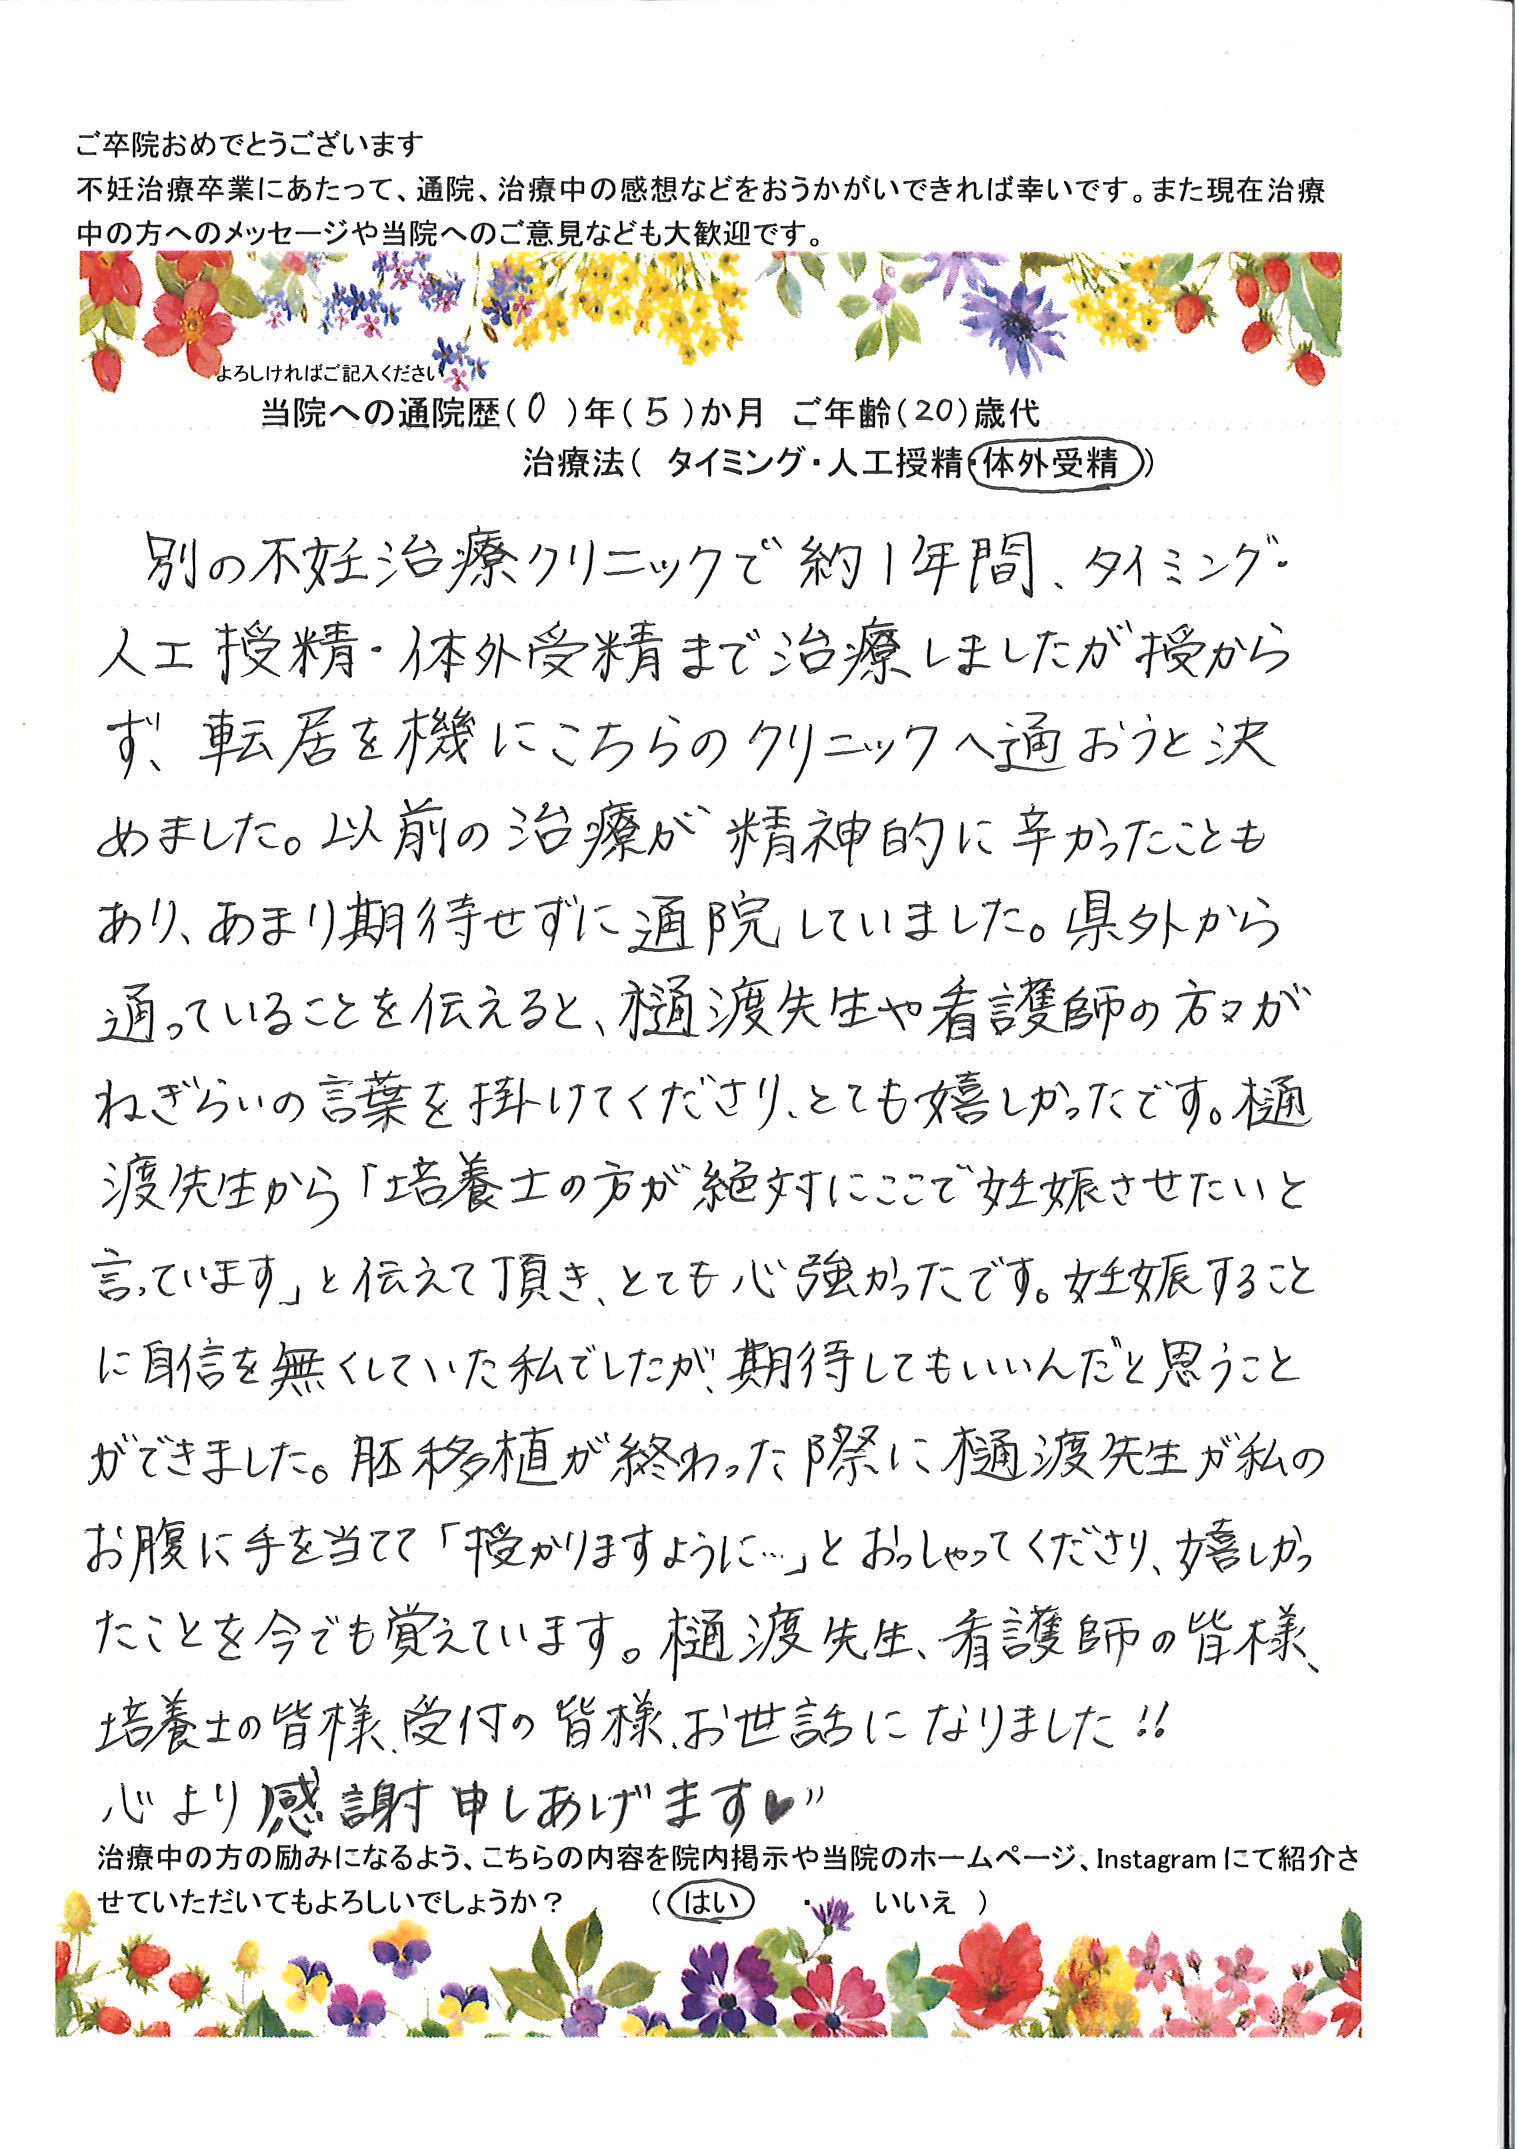 ご卒院おめでとうございます
不妊治療卒業にあたって、通院、治療中の感想などをおうかがいできれば幸いです。また現在治療
中の方へのメッセージや当院へのご意見なども大歓迎です。
よろしければご記入ください
当院への通院歴(0)年(5)か月 ご年齢(20)歳代
治療法( タイミング・人工授精・体外受精 )
別の不妊治療クリニックで約1年間、タイミング・
人工授精・体外受精まで治療しましたが授から
ず、転居を機にこちらのクリニックへ通おうと決
めました。以前の治療が精神的に辛かったことも
あり、あまり期待せずに通院していました。県外から
通っていることを伝えると、樋渡先生や看護師の方々が
ねぎらいの言葉を掛けてくださり、とても嬉しかったです。樋
渡先生から「培養士の方が絶対にここで妊娠させたいと
言っています」と伝えて頂き、とても心強かったです。妊娠すること
に自信を無くしていた私でしたが、期待してもいいんだと思うこと
ができました。胚移植が終わった際に樋渡先生が私の
お腹に手を当てて「授かりますように…」とおっしゃってくださり、嬉しかっ
たことを今でも覚えています。樋渡先生、看護師の皆様、
培養士の皆様、受付の皆様、お世話になりました!!
心より感謝申しあげます♥"
治療中の方の励みになるよう、こちらの内容を院内掲示や当院のホームページ、Instagramにて紹介さ
せていただいてもよろしいでしょうか? (はい ・ いいえ )